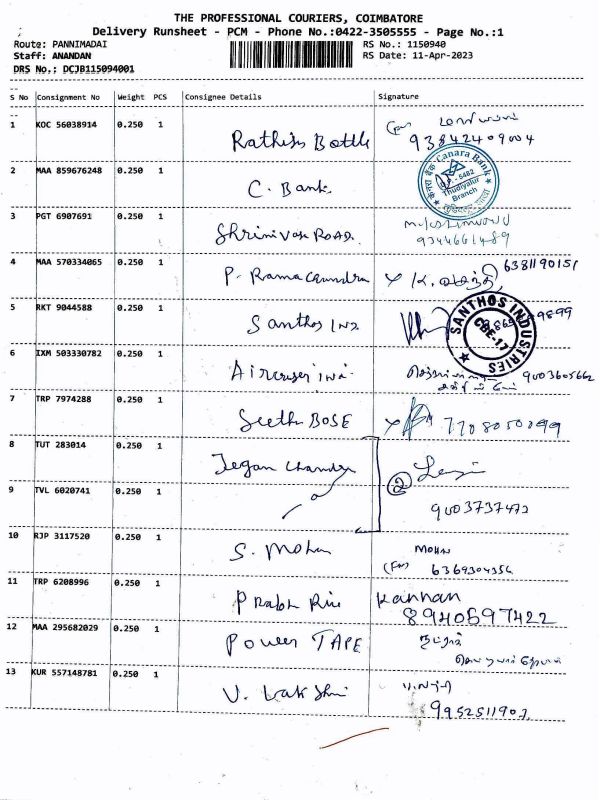 THE PROFESSIONAL COURIERS, COIMBATORE
Delivery Runsheet - PCM - Phone No.:0422-3505555 - Page No.:1
Route: PANNIMADAI RS No.: 1150940
Staff: ANANDAN RS Date: 11-Apr-2023
DRS No.: DCJB115094001
S No Consignment No Weight PCS Consignee Details Signature
1 KOC 56038914 0.250 1 Rathis Bottle 93842409004
2 MAA 859676248 0.250 1 C. Bank Canara Bank 6482 Thudiyalur Branch
3 PGT 6907691 0.250 1 Shrinivas ROAD 9344661489
4 MAA 570334065 0.250 1 P. Ramachandra 6381190151
5 RKT 9044588 0.250 1 Santhos Ind SANTHOS INDUSTRIES CBE-17
6 IXM 503330782 0.250 1 9003605662
7 TRP 7974288 0.250 1 Seetha BOSE 7708050099
8 TUT 283014 0.250 1 Jegan Chandra
9 TVL 6020741 0.250 1 9003737472
10 RJP 3117520 0.250 1 S. Mohan MOHN
(Fm) 6369304356
11 TRP 6208996 0.250 1 Prabh Kannan
8940597422
12 MAA 295682029 0.250 1 Power TAPE
13 KUR 557148781 0.250 1 V. Lakshmi